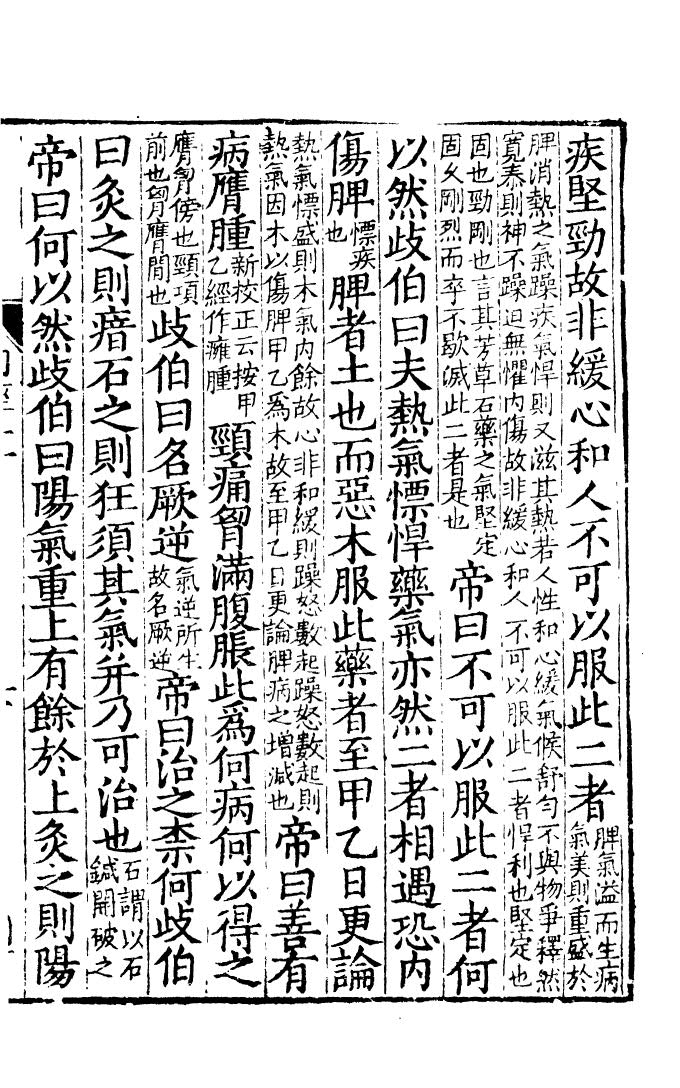 疾堅勁故非緩心和人不可以服此二者脾氣溢而生病氣美則重盛於
脾消熱之氣躁疾氣悍則又滋其熱若人性和心緩氣候舒勻不與物爭釋然
寬泰則神不躁迫無懼内傷故非緩心和人不可以服此二者悍利也堅定也
固也勁剛也言其芳草石藥之氣堅定固久剛烈而卒不歇滅此二者是也帝曰不可以服此二者何
以然歧伯曰夫熱氣慓悍藥氣亦然二者相遇恐内
傷脾慓疾也脾者土也而惡木服此藥者至甲乙日更論
熱氣慓盛則木氣内餘故心非和緩則躁怒數起躁怒數起則熱氣因木以傷脾甲乙爲木故至甲乙日更論脾病之增減也帝曰善有
病膺腫新挍正云按甲乙經作癰腫頸痛胷滿腹脹此爲何病何以得之
膺胷傍也頸項前也胷膺間也歧伯曰名厥逆氣逆所生故名厥逆帝曰治之柰何歧伯
曰灸之則瘖石之則狂須其氣并乃可治也石謂以石鍼開破之
帝曰何以然歧伯曰陽氣重上有餘於上灸之則陽